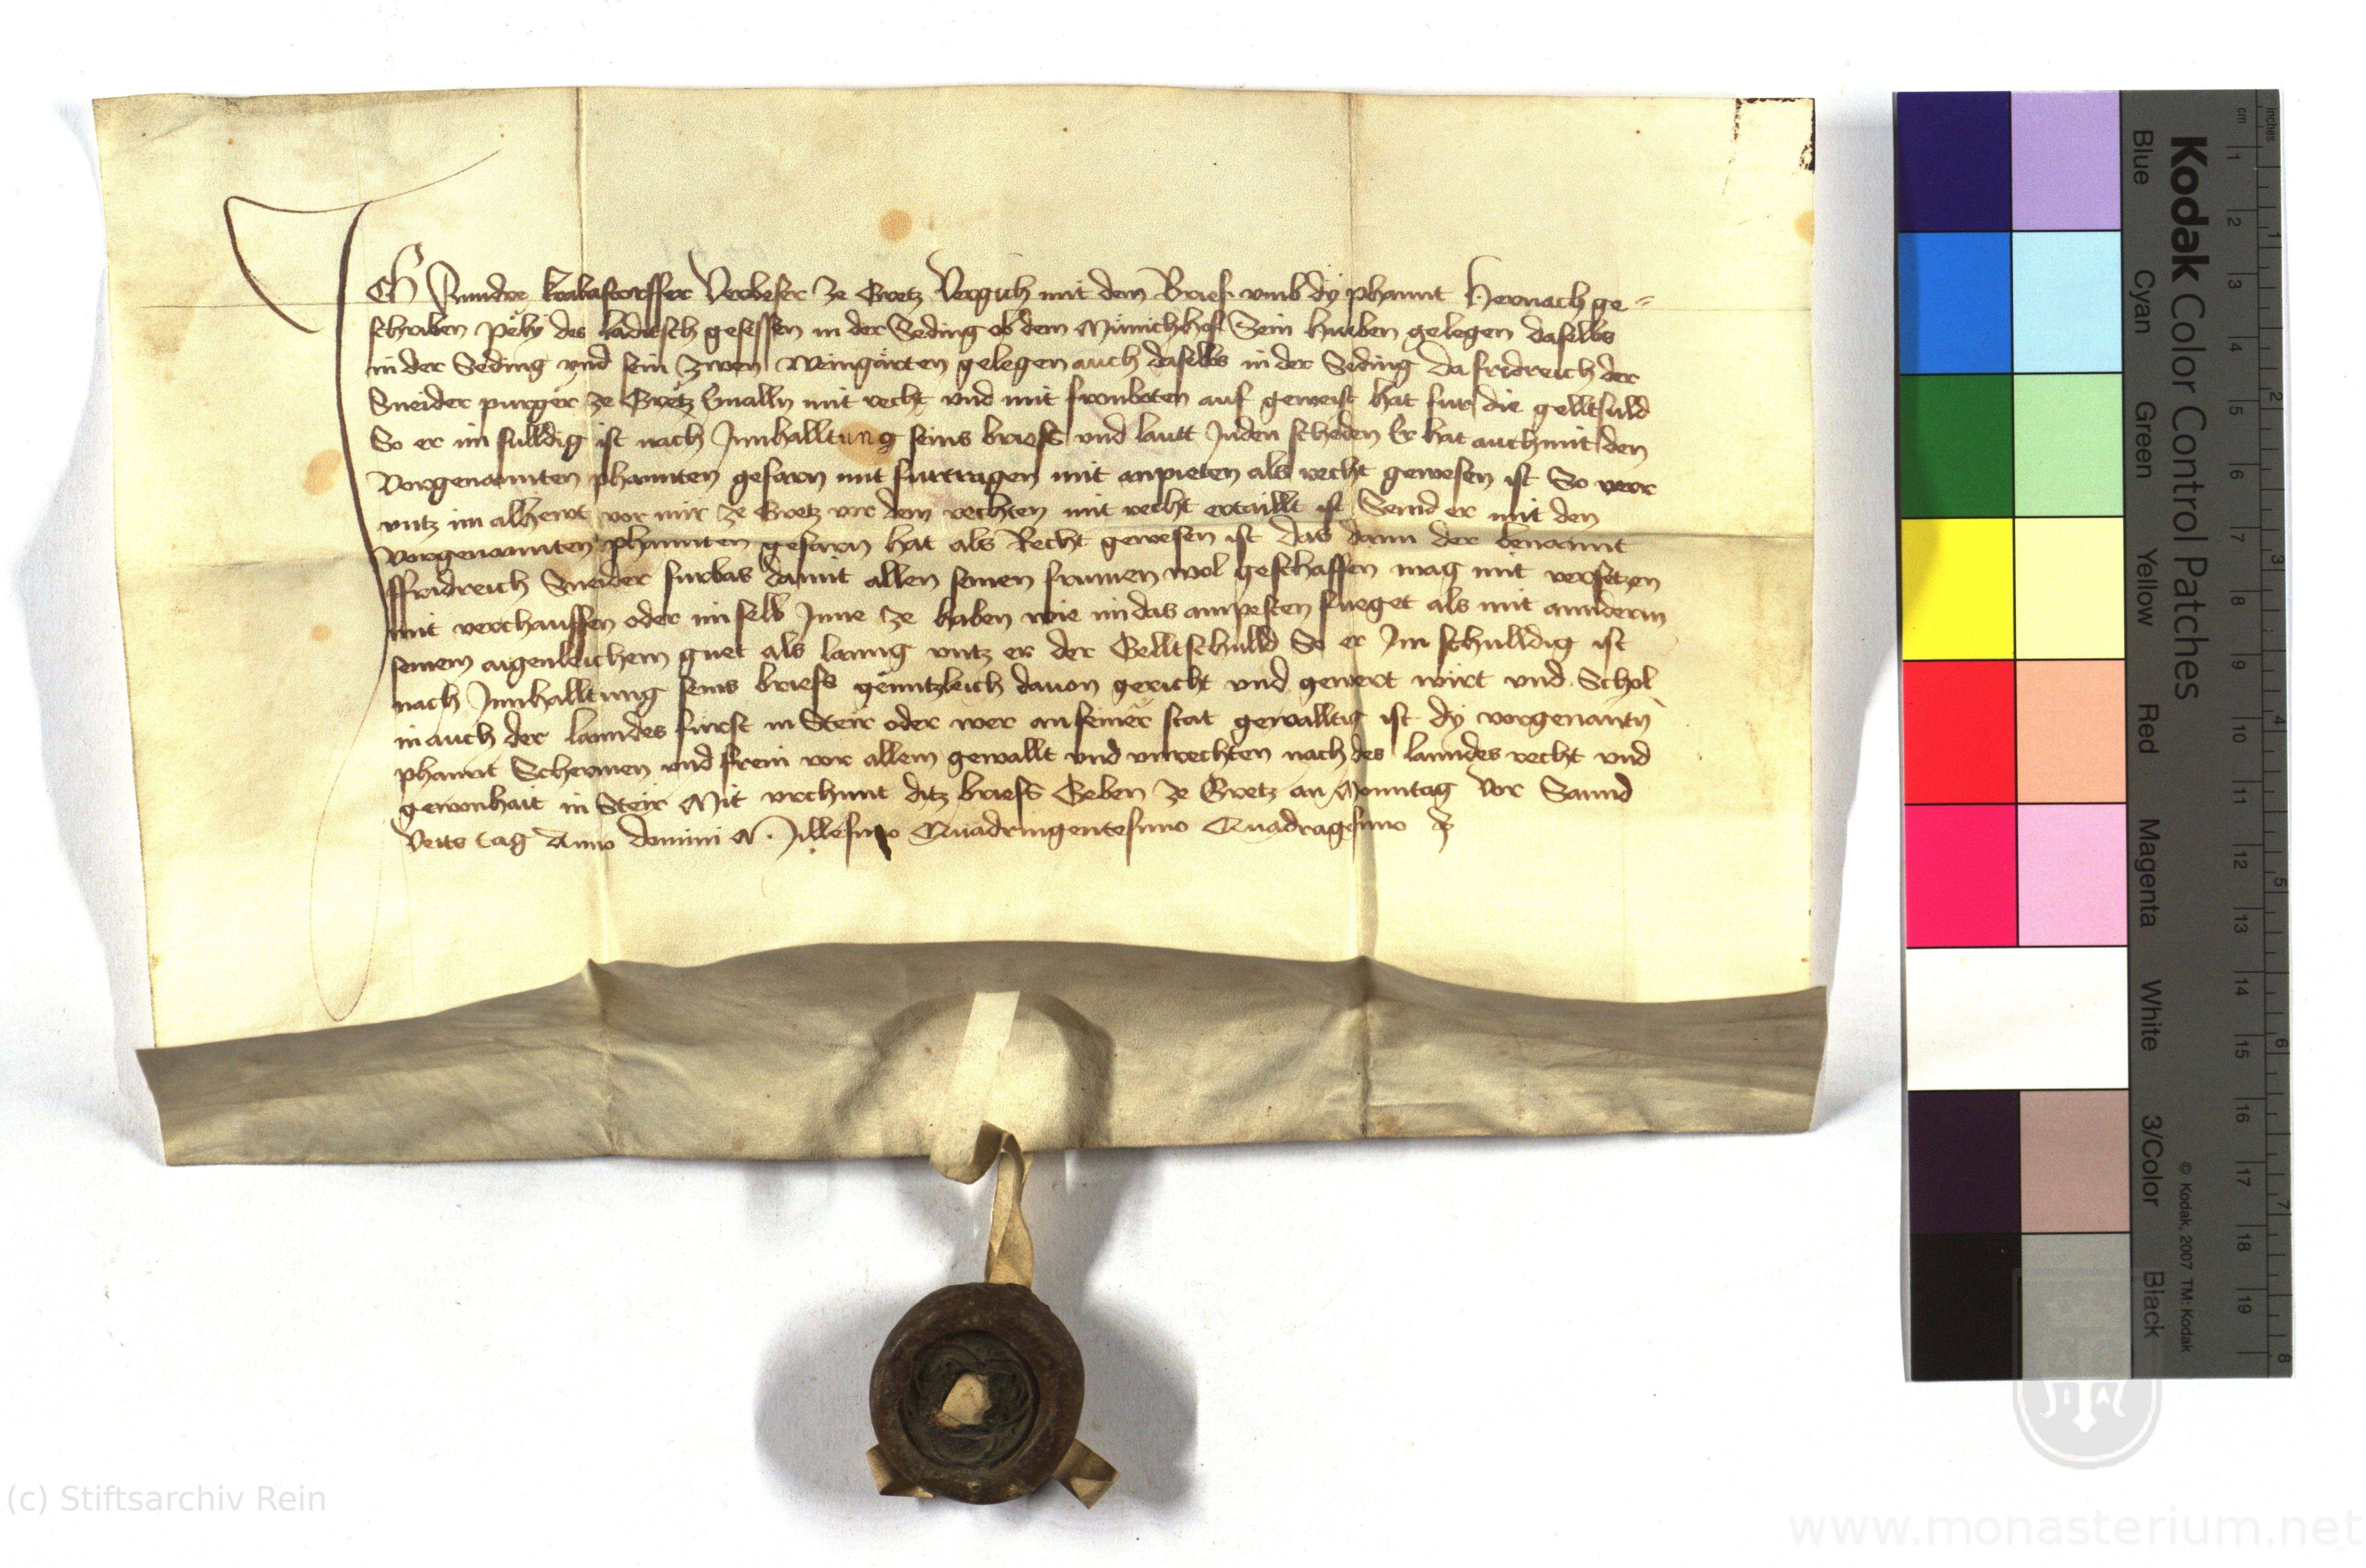 ICH Annder krabastorffer Verbeser ze Gretz Vergich mit dem Brief vmb dy phannt Hernach ge-
schriben Pêly des ladiesch gesessen in der Seding ob dem Münichhof Sein hueben gelegen daselbs
in der Seding vnd sein zwen Weingärten gelegen auch daselbs in der Seding da fridreich der
Sneider purger ze Gretz Enalln mit recht vnd mit fronboten auf geweist hat fur die gelltsuld
So er im sulldig ist nach Innhalltung seins briefs vnd lautt Juden scheden Er hat auch mit den
Vorgenannten phannten gefarn mit furtragen mit anpieten als recht gewesen ist So verr
vntz im alhewt vor mir ze Gretz vor dem rechten mit recht ertaillt ist Seind er mit den
Vorgenannten phannten gefarn hat als Recht gewesen ist das dann der benannt
ffridreich Sneider furbas damit allen seinen frumen wol geschaffen mag mit versetzen
mit verchauffen oder im selb Inne ze haben wie im das am pesten fueget als mit annderm
seinem aigenleichem guet als lanng vntz er der Gelltschulld So er Im schulldig ist
nach Innhalltung seins briefs gënntzleich dauon gericht vnd gewert wirt vnd Schol
in auch der lanndes fürst in Steir oder wer an seiner stat gewalltig ist dy vorgenantn
phannt Schermen vnd frein vor allem gewallt vnd vnrechten nach des lanndes recht vnd
gewonhait in Steir Mit vrchunt ditz briefs Geben ze Gretz an Monntag Vor Sannd
Veits tag Anno domini Millesimo Quadringentesimo Quadragesimo
Kodak Color Control Patches
Blue Cyan Green Yellow Red Magenta White 3/Color Black
© Kodak, 2007 TM: Kodak
inches 1 2 3 4 5 6 7 8
cm 1 2 3 4 5 6 7 8 9 10 11 12 13 14 15 16 17 18 19
(c) Stiftsarchiv Rein
www.monasterium.net